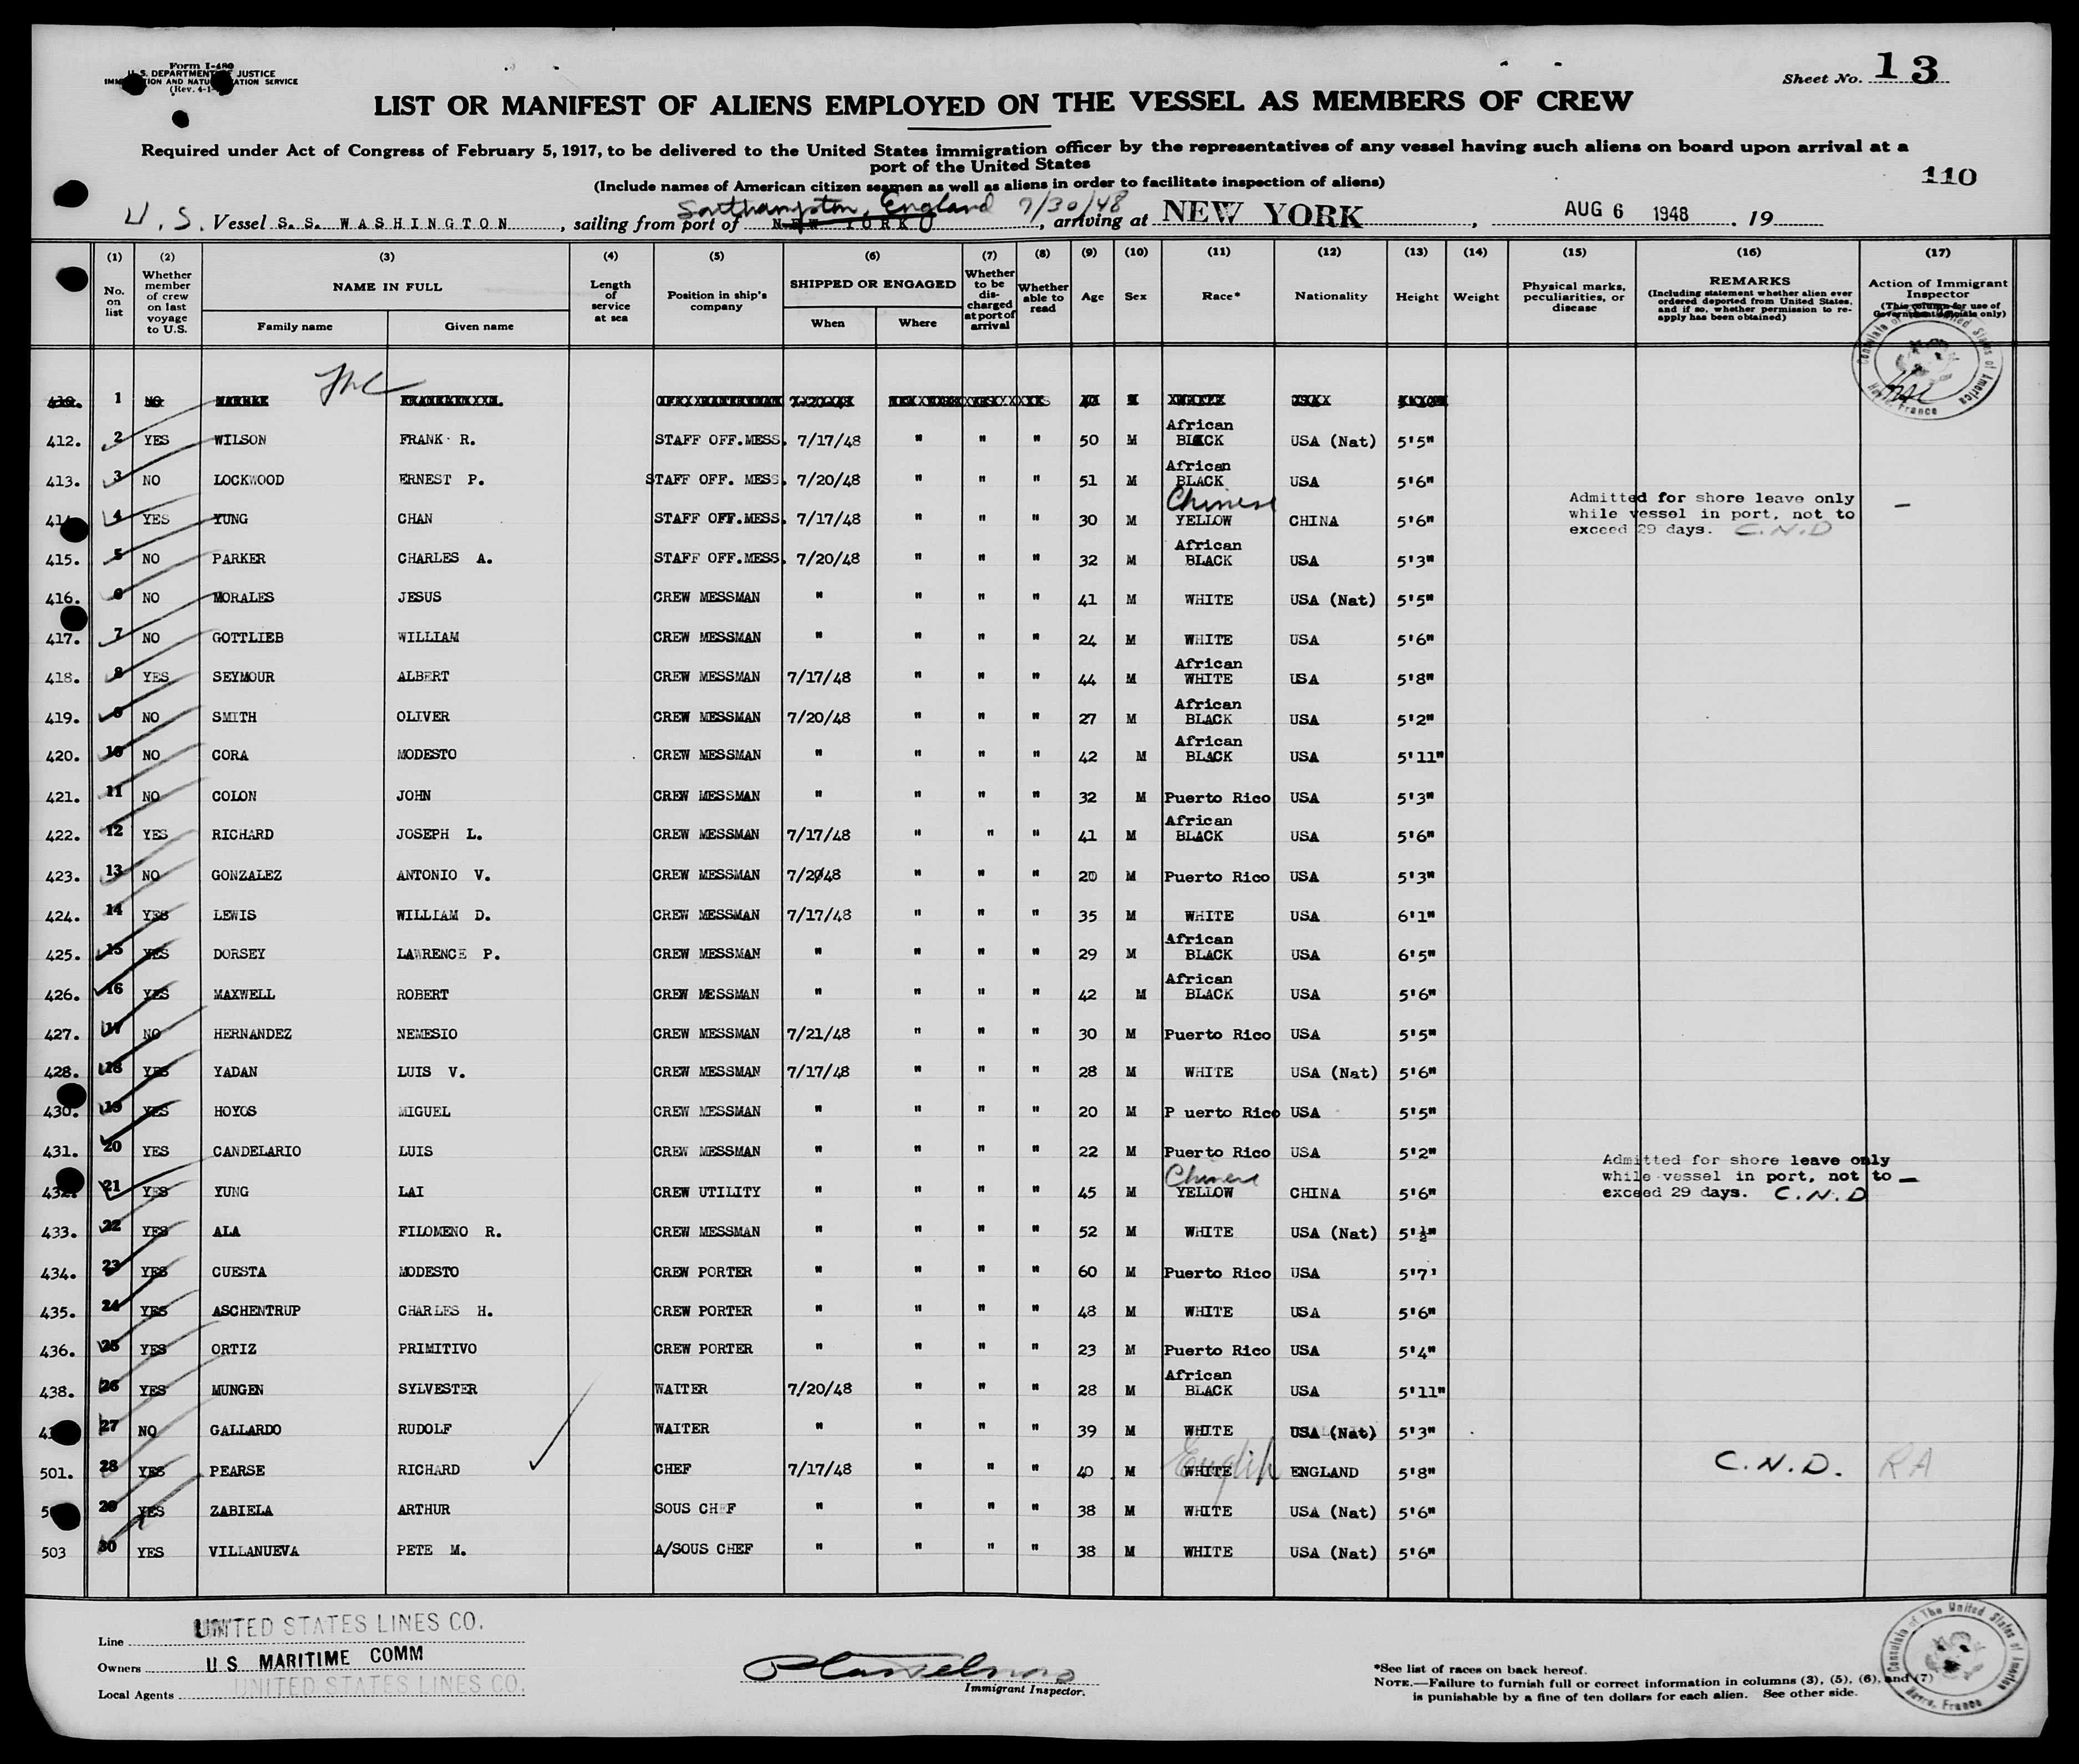 Form I-480
U. S. DEPARTMENT OF JUSTICE
IMMIGRATION AND NATURALIZATION SERVICE
(Rev. 4-1-
Sheet No. 13
LIST OR MANIFEST OF ALIENS EMPLOYED ON THE VESSEL AS MEMBERS OF CREW
Required under Act of Congress of February 5, 1917, to be delivered to the United States immigration officer by the representatives of any vessel having such aliens on board upon arrival at a
port of the United States
(Include names of American citizen seamen as well as aliens in order to facilitate inspection of aliens)
110
Southampton, England 7/30/48
U. S. Vessel S. S. WASHINGTON, sailing from port of NEW YORK, arriving at NEW YORK, AUG 6 1948 . 19
(1) (2) (3) (4) (5) (6) (7) (8) (9) (10) (11) (12) (13) (14) (15) (16) (17)
No. on list
Whether member of crew on last voyage to U.S.
NAME IN FULL
Family name Given name
Length of service at sea
Position in ship's company
SHIPPED OR ENGAGED
When Where
Whether to be discharged at port of arrival
Whether able to read
Age Sex Race* Nationality Height Weight
Physical marks, peculiarities, or disease
REMARKS
(Including statement whether alien ever ordered deported from United States, and if so, whether permission to re-apply has been obtained)
Action of Immigrant Inspector
(This column for use of Government officials only)
Consulate of The United States of America
Havre, France
1 NO
412. 2 YES WILSON FRANK R. STAFF OFF.MESS. 7/17/48 " " " 50 M African BLACK USA (Nat) 5'5"
413. 3 NO LOCKWOOD ERNEST P. STAFF OFF. MESS. 7/20/48 " " " 51 M African BLACK USA 5'6"
414. 4 YES YUNG CHAN STAFF OFF.MESS. 7/17/48 " " " 30 M Chinese YELLOW CHINA 5'6" Admitted for shore leave only while vessel in port, not to exceed 29 days. C.N.D —
415. 5 NO PARKER CHARLES A. STAFF OFF.MESS. 7/20/48 " " " 32 M African BLACK USA 5'3"
416. 6 NO MORALES JESUS CREW MESSMAN " " " " 41 M WHITE USA (Nat) 5'5"
417. 7 NO GOTTLIEB WILLIAM CREW MESSMAN " " " " 24 M WHITE USA 5'6"
418. 8 YES SEYMOUR ALBERT CREW MESSMAN 7/17/48 " " " 44 M African WHITE USA 5'8"
419. 9 NO SMITH OLIVER CREW MESSMAN 7/20/48 " " " 27 M African BLACK USA 5'2"
420. 10 NO CORA MODESTO CREW MESSMAN " " " " 42 M African BLACK USA 5'11"
421. 11 NO COLON JOHN CREW MESSMAN " " " " 32 M Puerto Rico USA 5'3"
422. 12 YES RICHARD JOSEPH L. CREW MESSMAN 7/17/48 " " " 41 M African BLACK USA 5'6"
423. 13 NO GONZALEZ ANTONIO V. CREW MESSMAN 7/20/48 " " " 20 M Puerto Rico USA 5'3"
424. 14 YES LEWIS WILLIAM D. CREW MESSMAN 7/17/48 " " " 35 M WHITE USA 6'1"
425. 15 YES DORSEY LAWRENCE P. CREW MESSMAN " " " " 29 M African BLACK USA 6'5"
426. 16 YES MAXWELL ROBERT CREW MESSMAN " " " " 42 M African BLACK USA 5'6"
427. 17 NO HERNANDEZ NEMESIO CREW MESSMAN 7/21/48 " " " 30 M Puerto Rico USA 5'5"
428. 18 YES YADAN LUIS V. CREW MESSMAN 7/17/48 " " " 28 M WHITE USA (Nat) 5'6"
430. 19 YES HOYOS MIGUEL CREW MESSMAN " " " " 20 M P uerto Rico USA 5'5"
431. 20 YES CANDELARIO LUIS CREW MESSMAN " " " " 22 M Puerto Rico USA 5'2"
432. 21 YES YUNG LAI CREW UTILITY " " " " 45 M Chinese YELLOW CHINA 5'6" Admitted for shore leave only while vessel in port, not to exceed 29 days. C.N.D —
433. 22 YES ALA FILOMENO R. CREW MESSMAN " " " " 52 M WHITE USA (Nat) 5'½"
434. 23 YES CUESTA MODESTO CREW PORTER " " " " 60 M Puerto Rico USA 5'7'
435. 24 YES ASCHENTRUP CHARLES H. CREW PORTER " " " " 48 M WHITE USA 5'6"
436. 25 YES ORTIZ PRIMITIVO CREW PORTER " " " " 23 M Puerto Rico USA 5'4"
438. 26 YES MUNGEN SYLVESTER WAITER 7/20/48 " " " 28 M African BLACK USA 5'11"
27 NO GALLARDO RUDOLF WAITER " " " " 39 M WHITE USA (Nat) 5'3"
501. 28 YES PEARSE RICHARD CHEF 7/17/48 " " " 40 M English WHITE ENGLAND 5'8" C.N.D. RA
29 YES ZABIELA ARTHUR SOUS CHEF " " " " 38 M WHITE USA (Nat) 5'6"
503 30 YES VILLANUEVA PETE M. A/SOUS CHEF " " " " 38 M WHITE USA (Nat) 5'6"
Line UNITED STATES LINES CO.
Owners U S MARITIME COMM
Local Agents UNITED STATES LINES CO.
Immigrant Inspector.
*See list of races on back hereof.
NOTE.—Failure to furnish full or correct information in columns (3), (5), (6), and (7)
is punishable by a fine of ten dollars for each alien. See other side.
Consulate of The United States of America
Havre, France